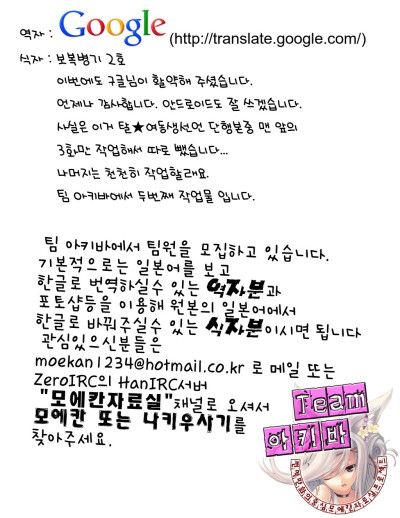 역자 : Google (http://translate.google.com/)
식자 : 보복병기 2호
이번에도 구글님이 활약해 주셨습니다.
언제나 감사합니다. 안드로이드도 잘 쓰겠습니다.
사실은 이거 탈★여동생선언 단행본중 맨 앞의
3화만 작업해서 따로 뺐습니다...
나머지는 천천히 작업할래요.
팀 아키바에서 두번째 작업물 입니다.
팀 아키바에서 팀원을 모집하고 있습니다.
기본적으로는 일본어를 보고
한글로 번역하실수 있는 역자분과
포토샵등을 이용해 원본의 일본어에서
한글로 바꿔주실수 있는 식자분이시면 됩니다
관심있으신분들은
moekan1234@hotmail.co.kr 로 메일 또는
ZeroIRC의 HanIRC서버
"모에칸자료실"채널로 오셔서
모에칸 또는 나키우사기를
찾아주세요.
Team
아키바